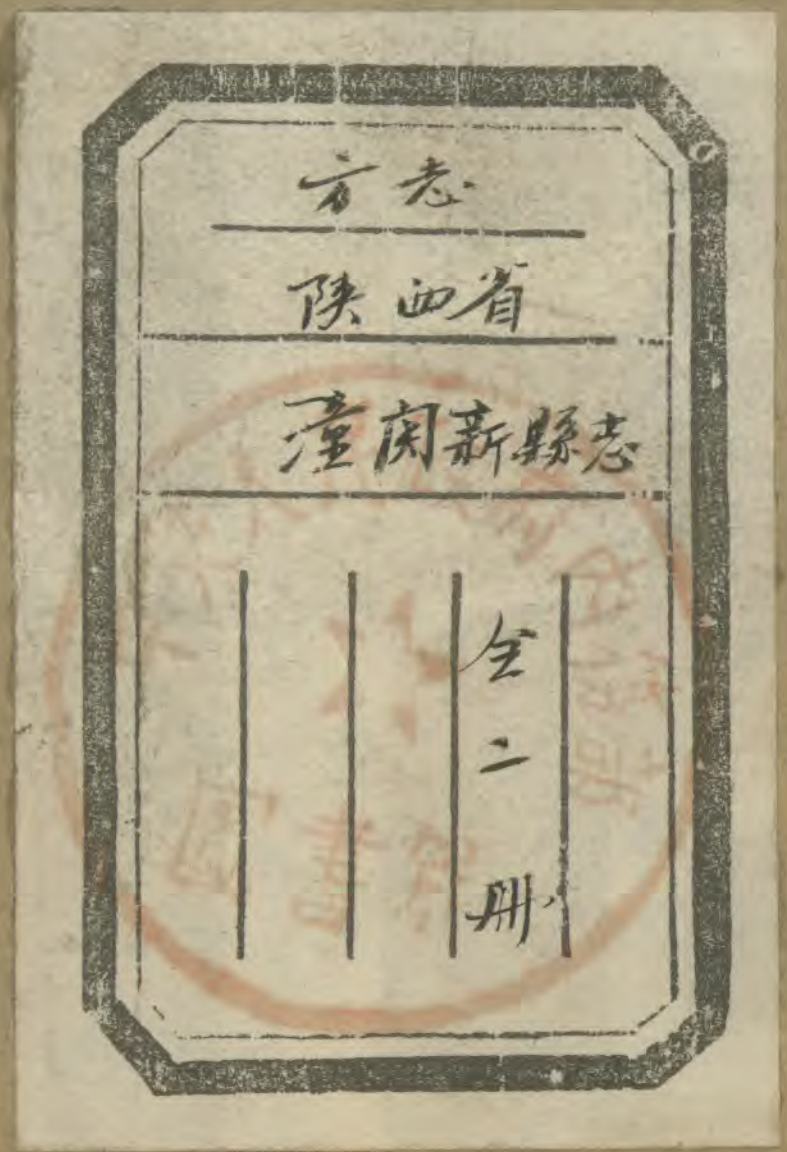 方志
陕西省
潼关新縣志
全二册